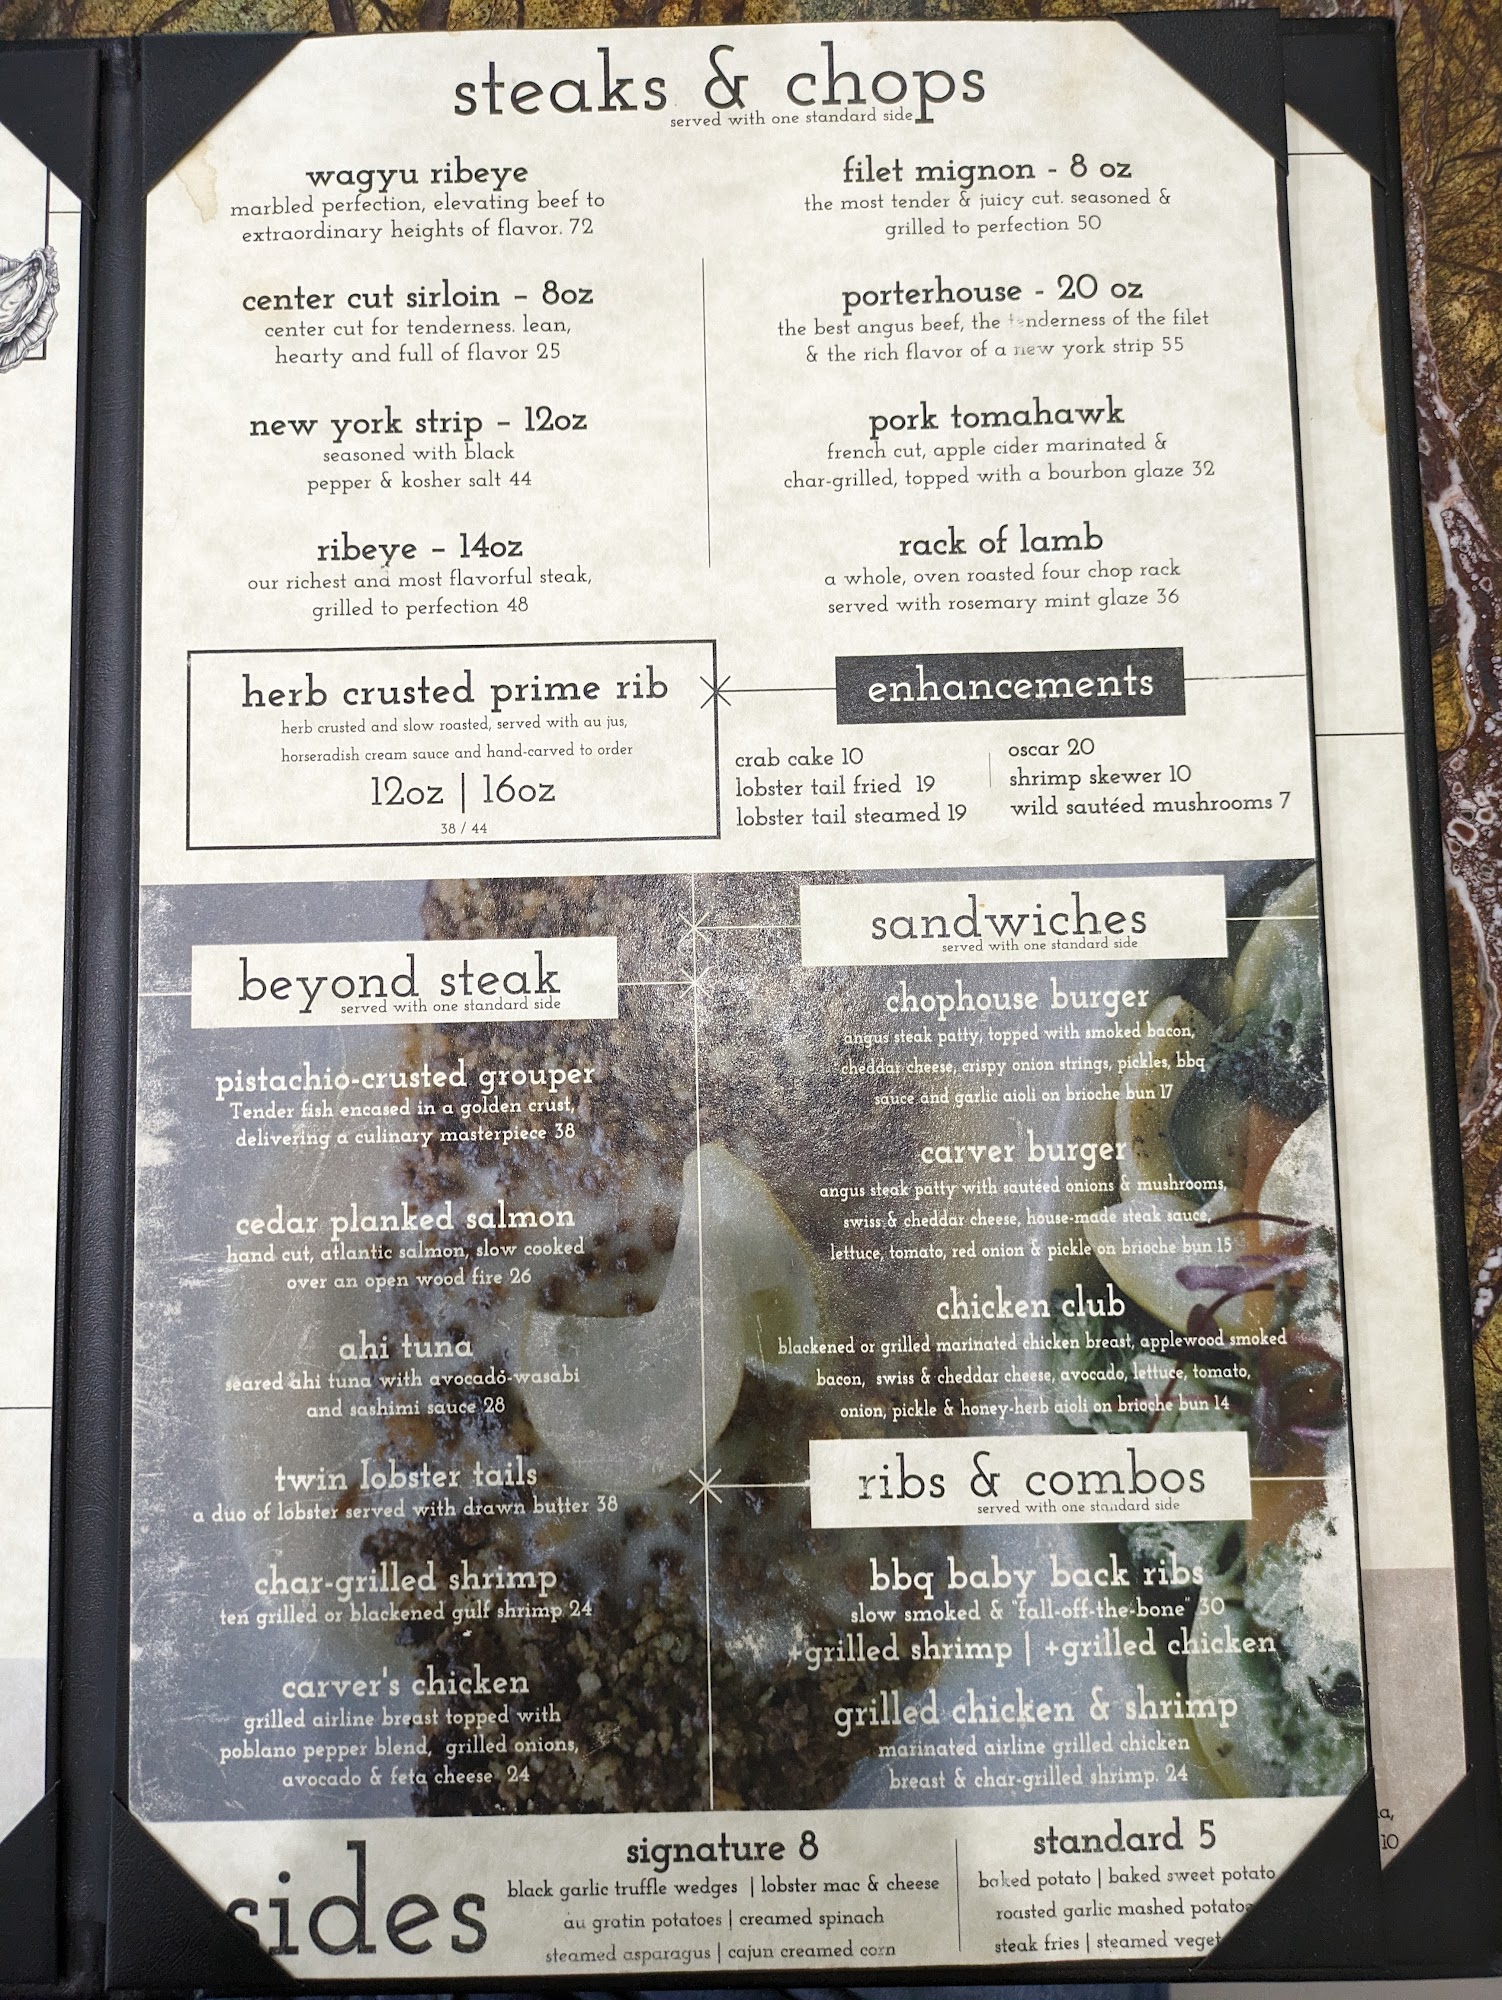 steaks & chops
served with one standard side
wagyu ribeye
marbled perfection, elevating beef to
extraordinary heights of flavor. 72
center cut sirloin – 8oz
center cut for tenderness. lean,
hearty and full of flavor 25
new york strip – 12oz
seasoned with black
pepper & kosher salt 44
ribeye – 14oz
our richest and most flavorful steak,
grilled to perfection 48
filet mignon - 8 oz
the most tender & juicy cut. seasoned &
grilled to perfection 50
porterhouse - 20 oz
the best angus beef, the tenderness of the filet
& the rich flavor of a new york strip 55
pork tomahawk
french cut, apple cider marinated &
char-grilled, topped with a bourbon glaze 32
rack of lamb
a whole, oven roasted four chop rack
served with rosemary mint glaze 36
herb crusted prime rib
herb crusted and slow roasted, served with au jus,
horseradish cream sauce and hand-carved to order
12oz | 16oz
38 / 44
enhancements
crab cake 10
lobster tail fried 19
lobster tail steamed 19
oscar 20
shrimp skewer 10
wild sautéed mushrooms 7
beyond steak
served with one standard side
pistachio-crusted grouper
Tender fish encased in a golden crust,
delivering a culinary masterpiece 38
cedar planked salmon
hand cut, atlantic salmon, slow cooked
over an open wood fire 26
ahi tuna
seared ahi tuna with avocado-wasabi
and sashimi sauce 28
twin lobster tails
a duo of lobster served with drawn butter 38
char-grilled shrimp
ten grilled or blackened gulf shrimp 24
carver's chicken
grilled airline breast topped with
poblano pepper blend, grilled onions,
avocado & feta cheese 24
sandwiches
served with one standard side
chophouse burger
angus steak patty, topped with smoked bacon,
cheddar cheese, crispy onion strings, pickles, bbq
sauce and garlic aioli on brioche bun 17
carver burger
angus steak patty with sautéed onions & mushrooms,
swiss & cheddar cheese, house-made steak sauce,
lettuce, tomato, red onion & pickle on brioche bun 15
chicken club
blackened or grilled marinated chicken breast, applewood smoked
bacon, swiss & cheddar cheese, avocado, lettuce, tomato,
onion, pickle & honey-herb aioli on brioche bun 14
ribs & combos
served with one standard side
bbq baby back ribs
slow smoked & "fall-off-the-bone" 30
+grilled shrimp | +grilled chicken
grilled chicken & shrimp
marinated airline grilled chicken
breast & char-grilled shrimp. 24
sides
signature 8
black garlic truffle wedges | lobster mac & cheese
au gratin potatoes | creamed spinach
steamed asparagus | cajun creamed corn
standard 5
baked potato | baked sweet potato
roasted garlic mashed potatoe
steak fries | steamed veget
a,
10